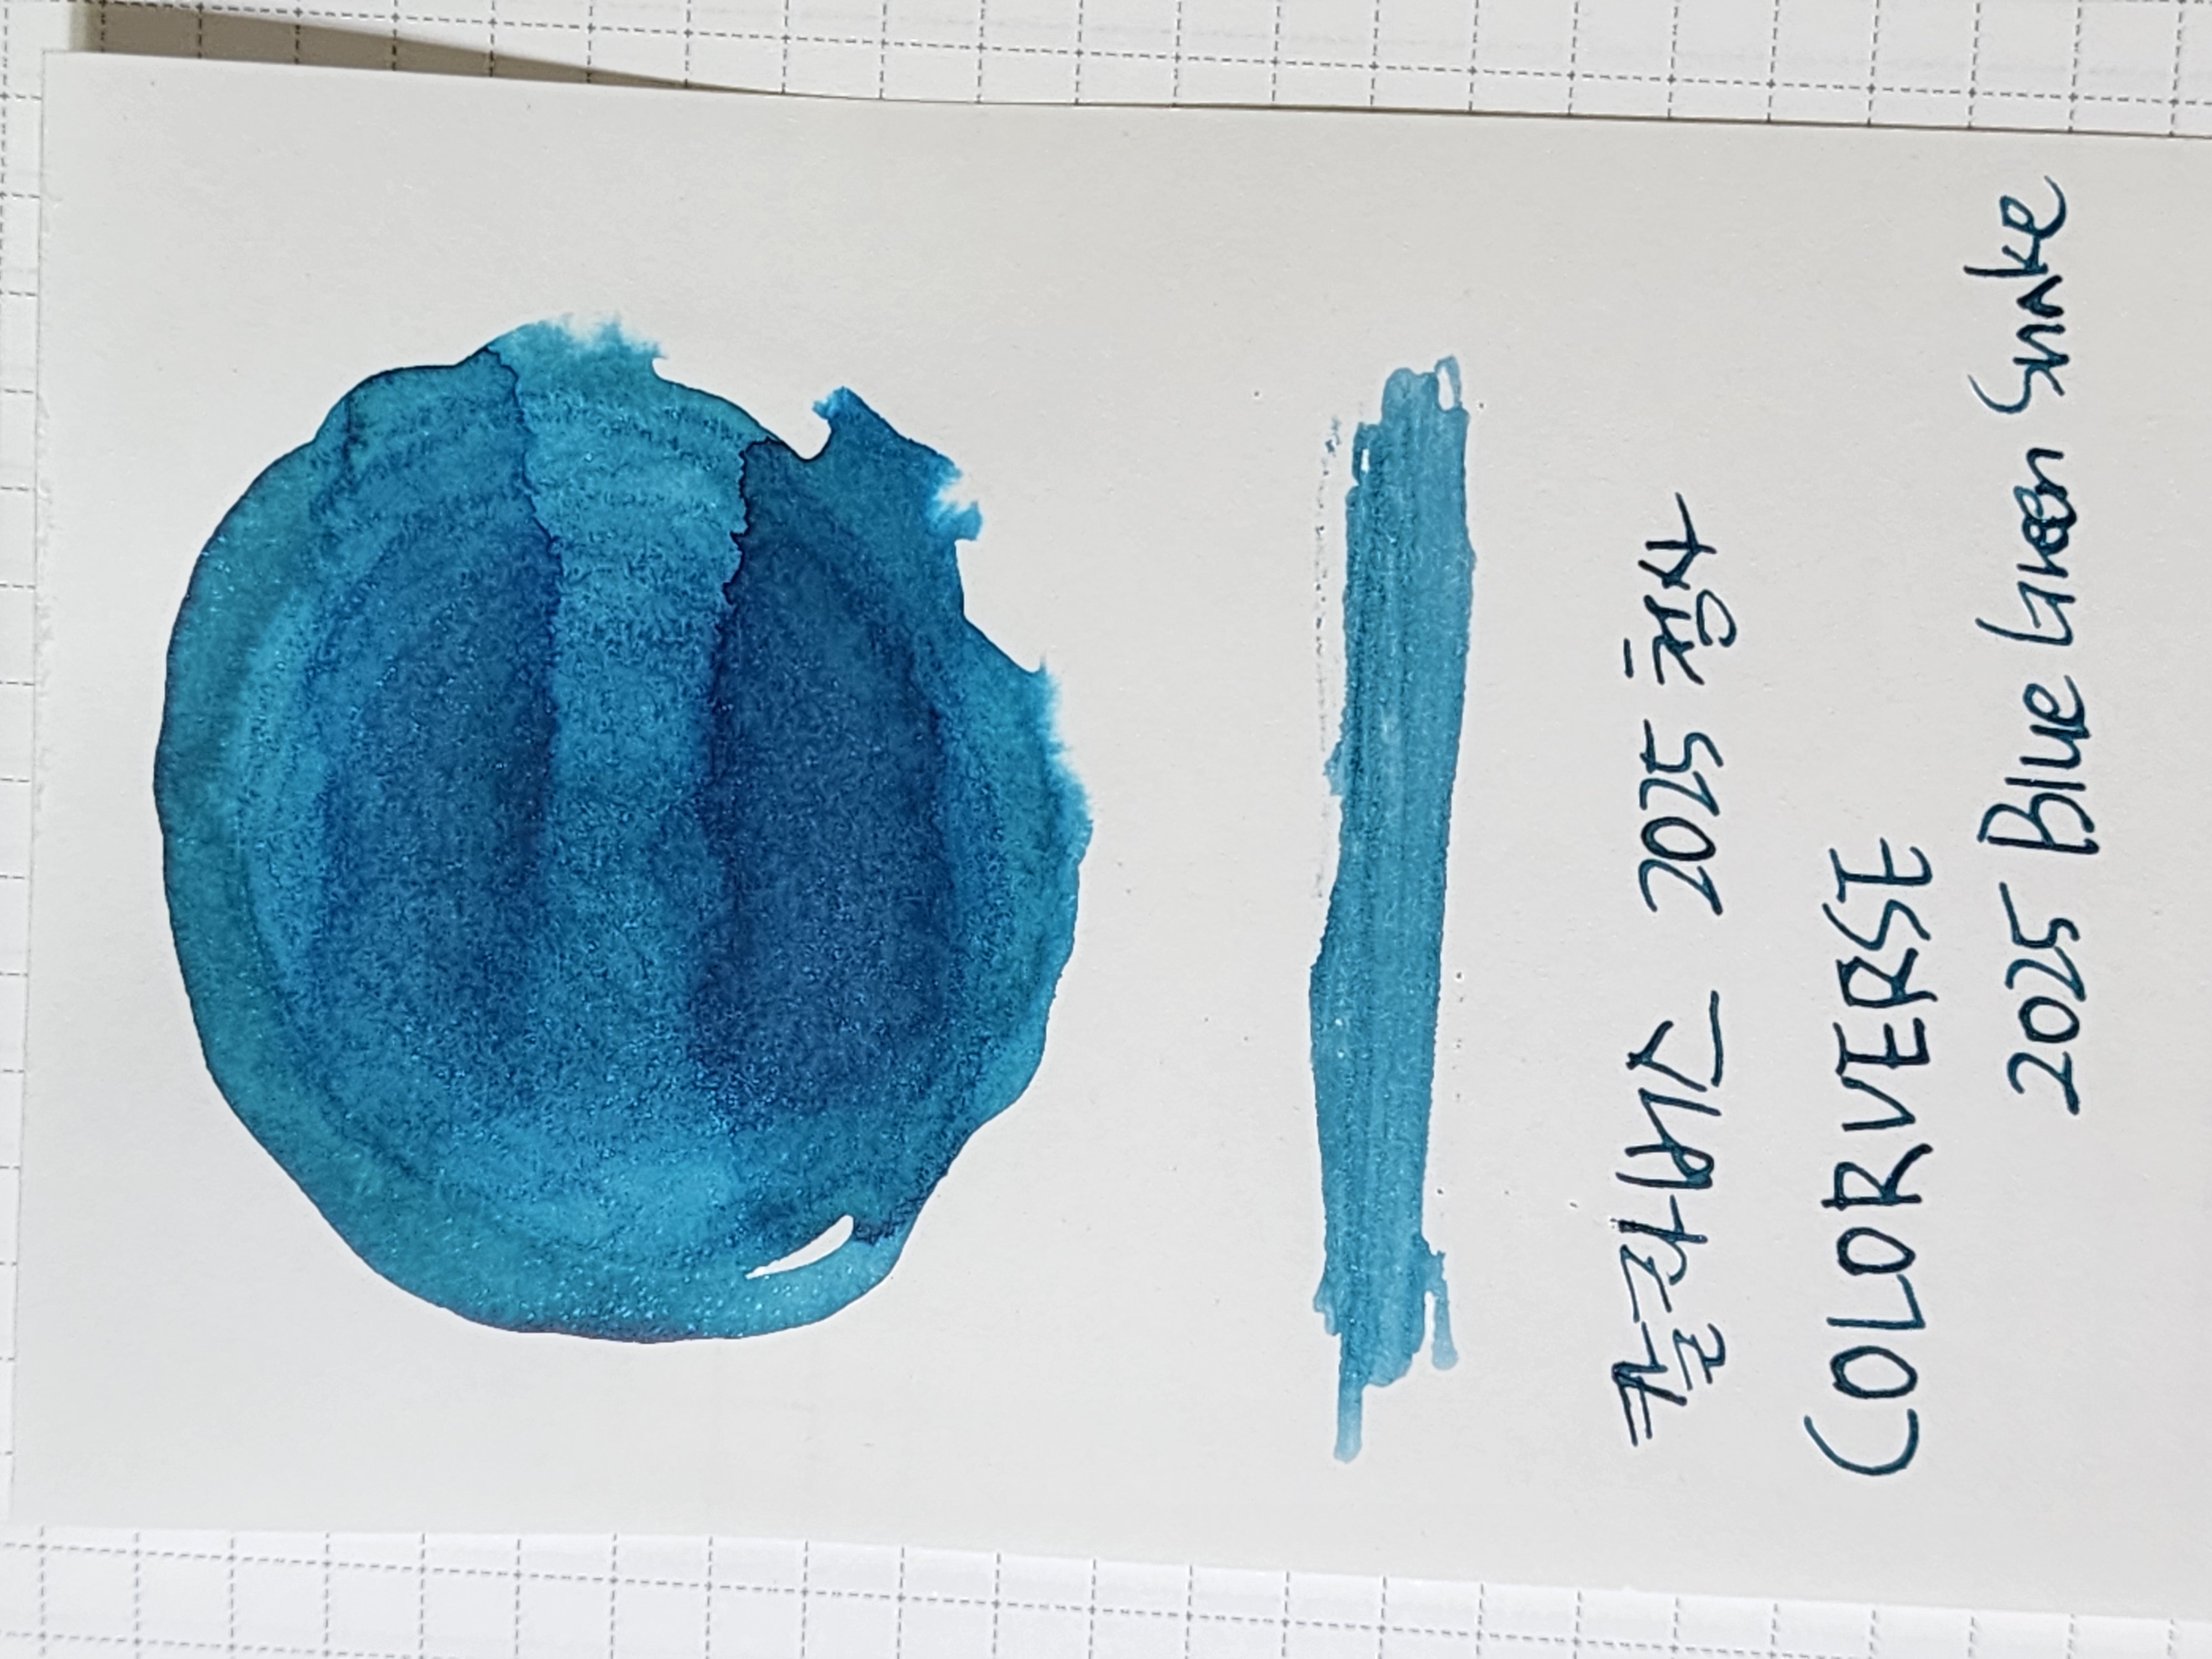 컬러버스 2025 청사
COLORVERSE
2025 Blue Green Snake